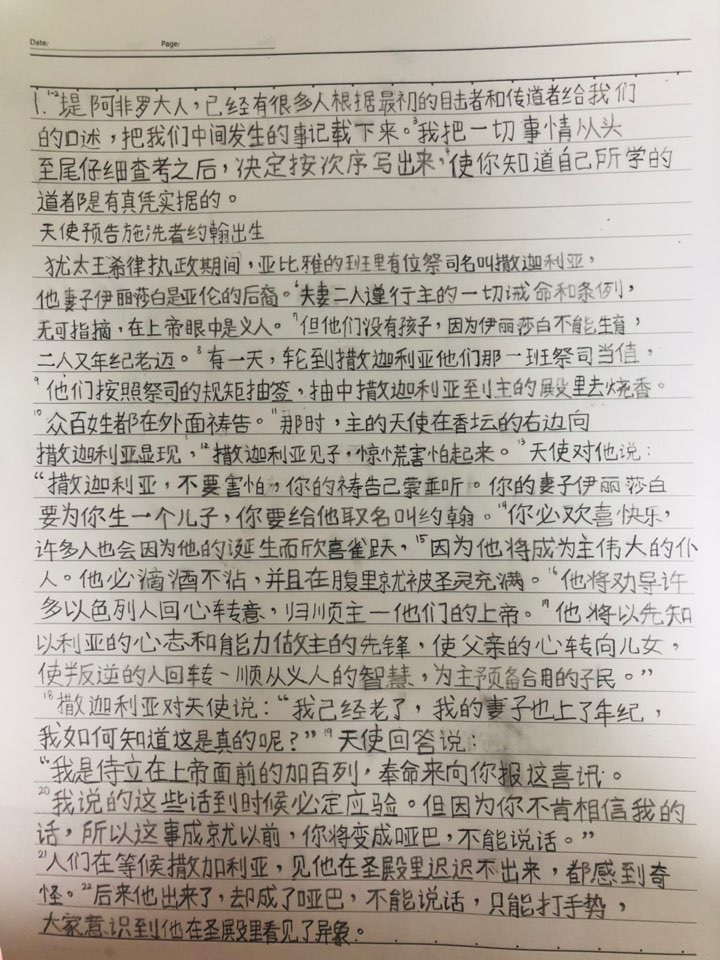 Date: Page:
1. ¹⁻²提阿非罗大人，已经有很多人根据最初的目击者和传道者给我们
的口述，把我们中间发生的事记载下来。³我把一切事情从头
至尾仔细查考之后，决定按次序写出来，⁴使你知道自己所学的
道都是有真凭实据的。
天使预告施洗者约翰出生
犹太王希律执政期间，亚比雅的班里有位祭司名叫撒迦利亚，
他妻子伊丽莎白是亚伦的后裔。⁶夫妻二人遵行主的一切诫命和条例，
无可指摘，在上帝眼中是义人。⁷但他们没有孩子，因为伊丽莎白不能生育，
二人又年纪老迈。⁸有一天，轮到撒迦利亚他们那一班祭司当值，
⁹他们按照祭司的规矩抽签，抽中撒迦利亚至到主的殿里去烧香。
¹⁰众百姓都在外面祷告。¹¹那时，主的天使在香坛的右边向
撒迦利亚显现，¹²撒迦利亚见了，惊慌害怕起来。¹³天使对他说：
“撒迦利亚，不要害怕，你的祷告已蒙垂听。你的妻子伊丽莎白
要为你生一个儿子，你要给他取名叫约翰。¹⁴你必欢喜快乐，
许多人也会因为他的诞生而欣喜雀跃，¹⁵因为他将成为主伟大的仆
人。他必滴酒不沾，并且在腹里就被圣灵充满。¹⁶他将劝导许
多以色列人回心转意，归顺主—他们的上帝。¹⁷他将以先知
以利亚的心志和能力做主的先锋，使父亲的心转向儿女，
使叛逆的人回转、顺从义人的智慧，为主预备合用的子民。”
¹⁸撒迦利亚对天使说：“我已经老了，我的妻子也上了年纪，
我如何知道这是真的呢？”¹⁹天使回答说：
“我是侍立在上帝面前的加百列，奉命来向你报这喜讯。
²⁰我说的这些话到时候必定应验。但因为你不肯相信我的
话，所以这事成就以前，你将变成哑巴，不能说话。”
²¹人们在等候撒加利亚，见他在圣殿里迟迟不出来，都感到奇
怪。²²后来他出来了，却成了哑巴，不能说话，只能打手势，
大家意识到他在圣殿里看见了异象。